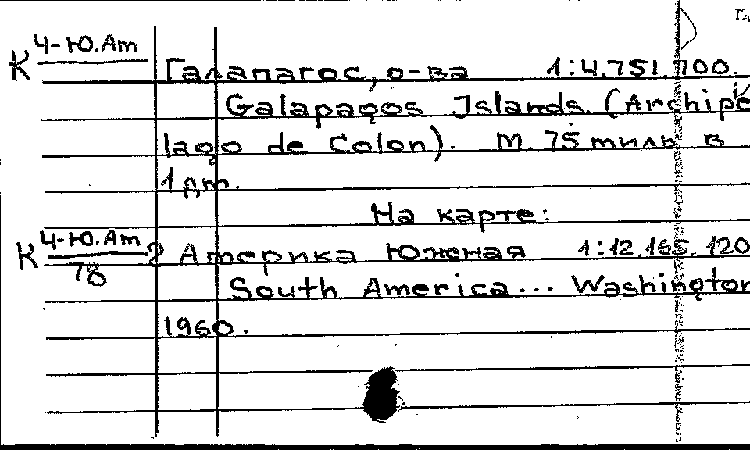 К 4-Ю.Ат
Галапагос, о-ва 1:4.751.700.
Galapagos Islands (Archipe
lago de Colon). М. 75 миль в
1 дм.
На карте:
К 4-Ю.Ат Америка Южная 1:12.165.120
78
South America... Washington
1960.